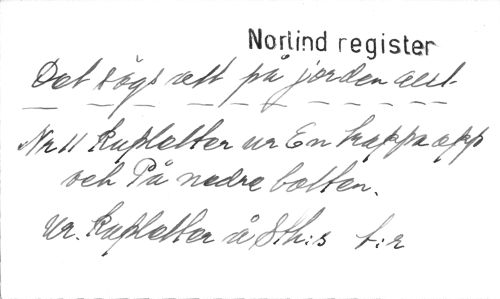 Norlind register
Det sägs att på jorden allt
Nr 11 Kupletter ur En trappa upp
och På nedre botten.
Ur. Kupletter å Sth:s t:r